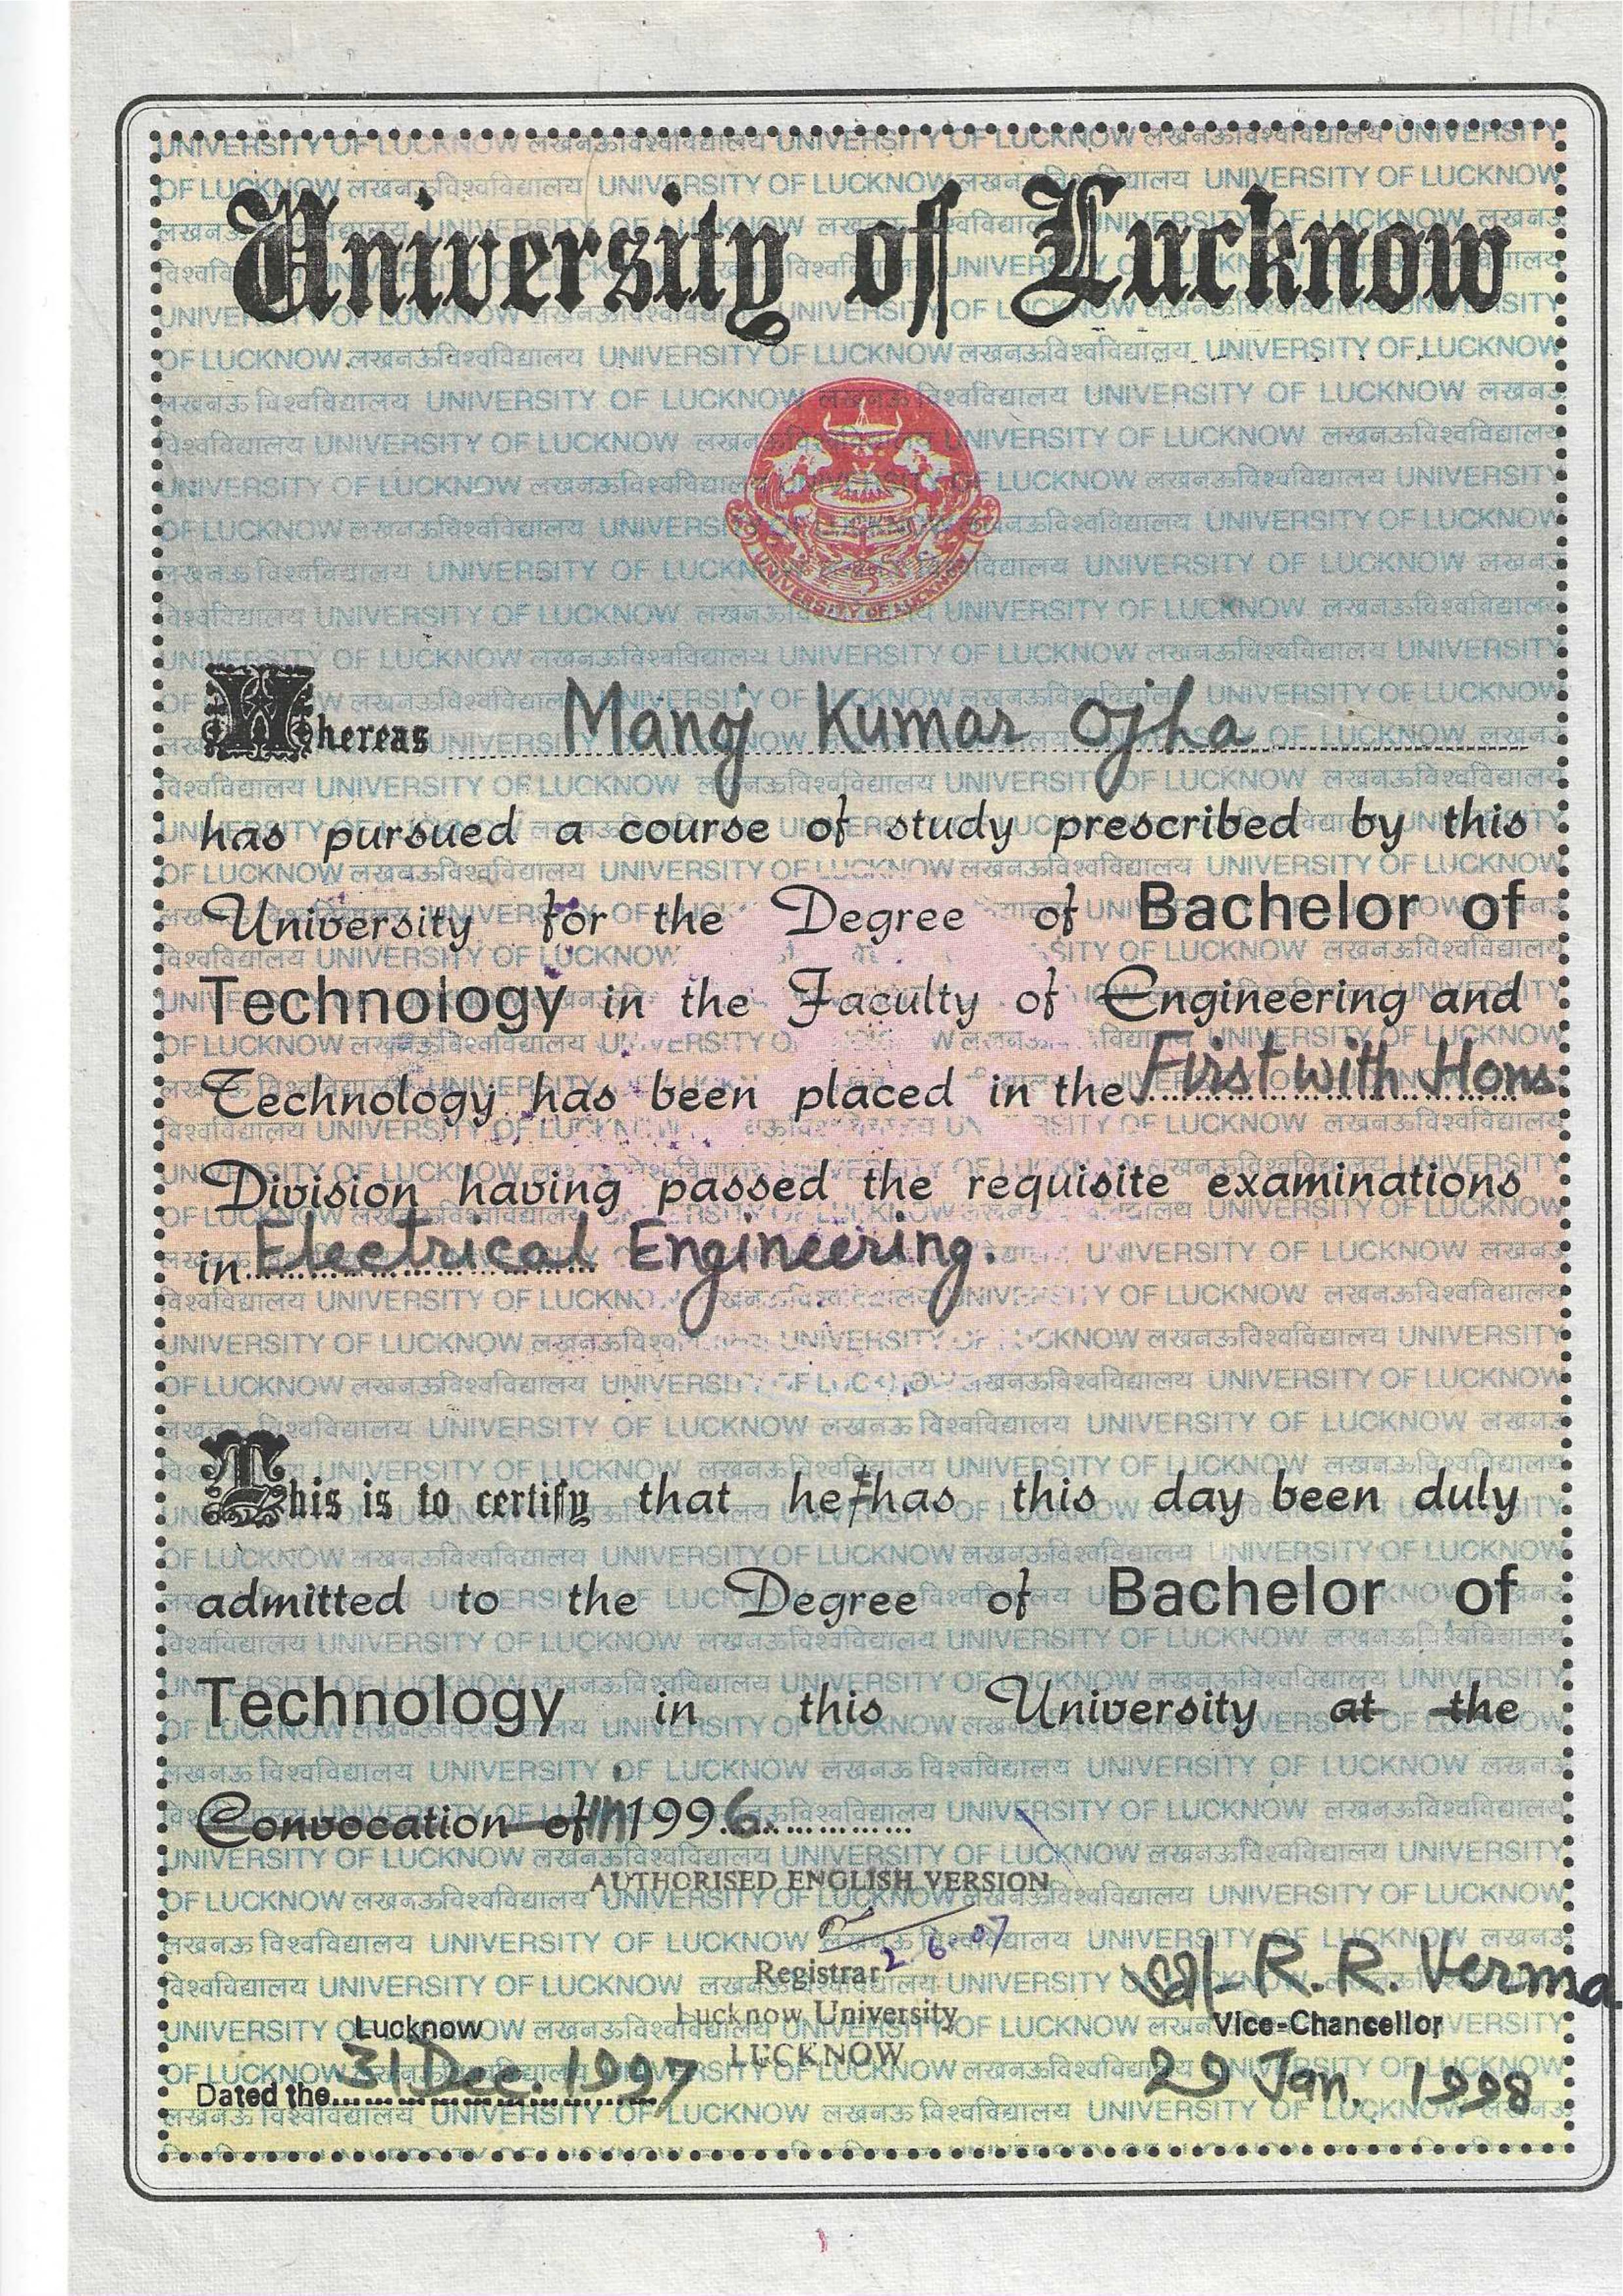 University of Lucknow
UNIVERSITY OF LUCKNOW
Whereas Manoj Kumar Ojha
has pursued a course of study prescribed by this
University for the Degree of Bachelor of
Technology in the Faculty of Engineering and
Technology has been placed in the First with Hons.
Division having passed the requisite examinations
in Electrical Engineering.
This is to certify that he has this day been duly
admitted to the Degree of Bachelor of
Technology in this University at the
Convocation of in 1996
AUTHORISED ENGLISH VERSION
2.6.07
Registrar
Lucknow University
LUCKNOW
R. R. Verma
Vice-Chancellor
29 Jan. 1998
Lucknow
Dated the 31 Dec. 1997